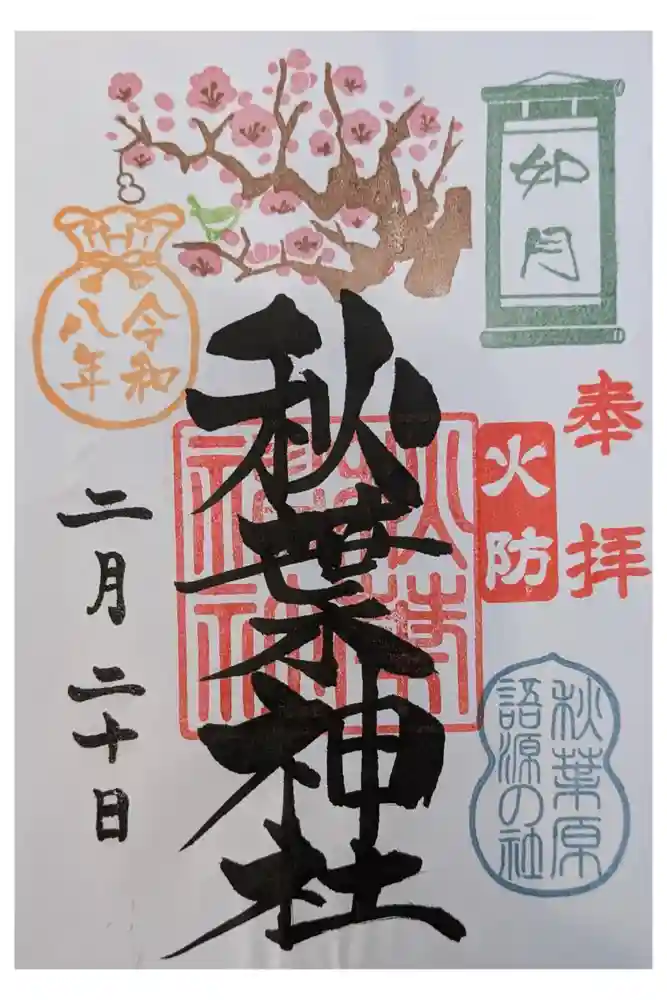 如月
奉拝
火防
秋葉原
語源の社
秋葉神社
令和
八年
二月二十日